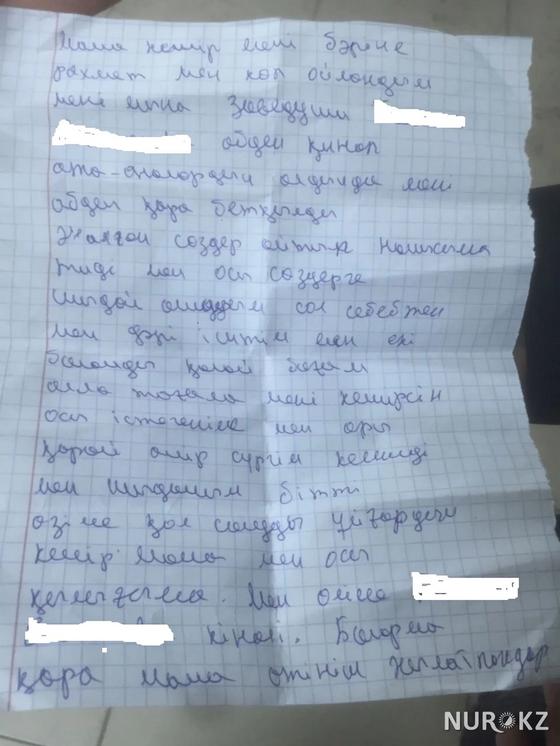 Мама кешір мені бәріне
рахмет мен көп ойландым
мені мына заведущи
абден қинап
ата-аналардың алдында мені
абден қара бетқылды
Жалған сөздер айтып намысыма
тиді мен осы сөздерге
шыдай алмадым сол себебтен
мен дәрі ішітім мен екі
баламды қалай бағам
алла тағала мені кешірсін
осы істегеніме мен ары
қарай өмір сүргім келмиді
мен шыдамым бітті
өзіне қол салды
кешір мама мен осы
қылығыма. Мен өлсем
кінәлі. Балама
қара мама өтініш жыламаңдар
NUR.KZ